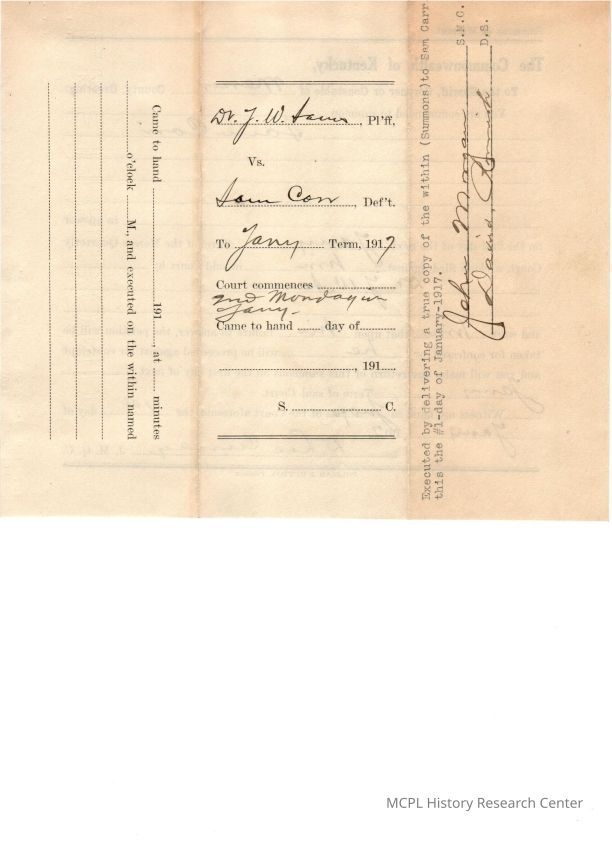 Came to hand ........ 191..., at ...... minutes
......o'clock ......M., and executed on the within named
Dr. J. W. , Pl'ff,
Vs.
Sam Carr, Def't.
To Jany Term, 1917
Court commences
2nd Monday in
Jany.
Came to hand ....... day of...........
, 191.....
S. ........................ C.
Executed by delivering a true copy of the within (Summons)to Sam Carr.
this the #1-day of January-1917.
John Morgan S.M.C.
David D.S.
The Commonwealth of Kentucky,
MCPL History Research Center